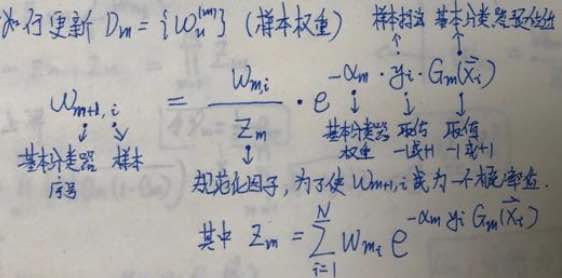 如何更新 Dm = {w_n^(m)} (样本权重) 样本标注 基本分类器预估值
w_{m+1,i} = w_{m,i} / Z_m · e^{-α_m · y_i · G_m(x_i)}
基本分类器 序号 样本
基本分类器 权重 取值 -1或+1 取值 -1或+1
规范化因子,为了使 w_{m+1,i} 成为一个概率值.
其中 Z_m = Σ_{i=1}^{N} w_{mi} e^{-α_m y_i G_m(x_i)}